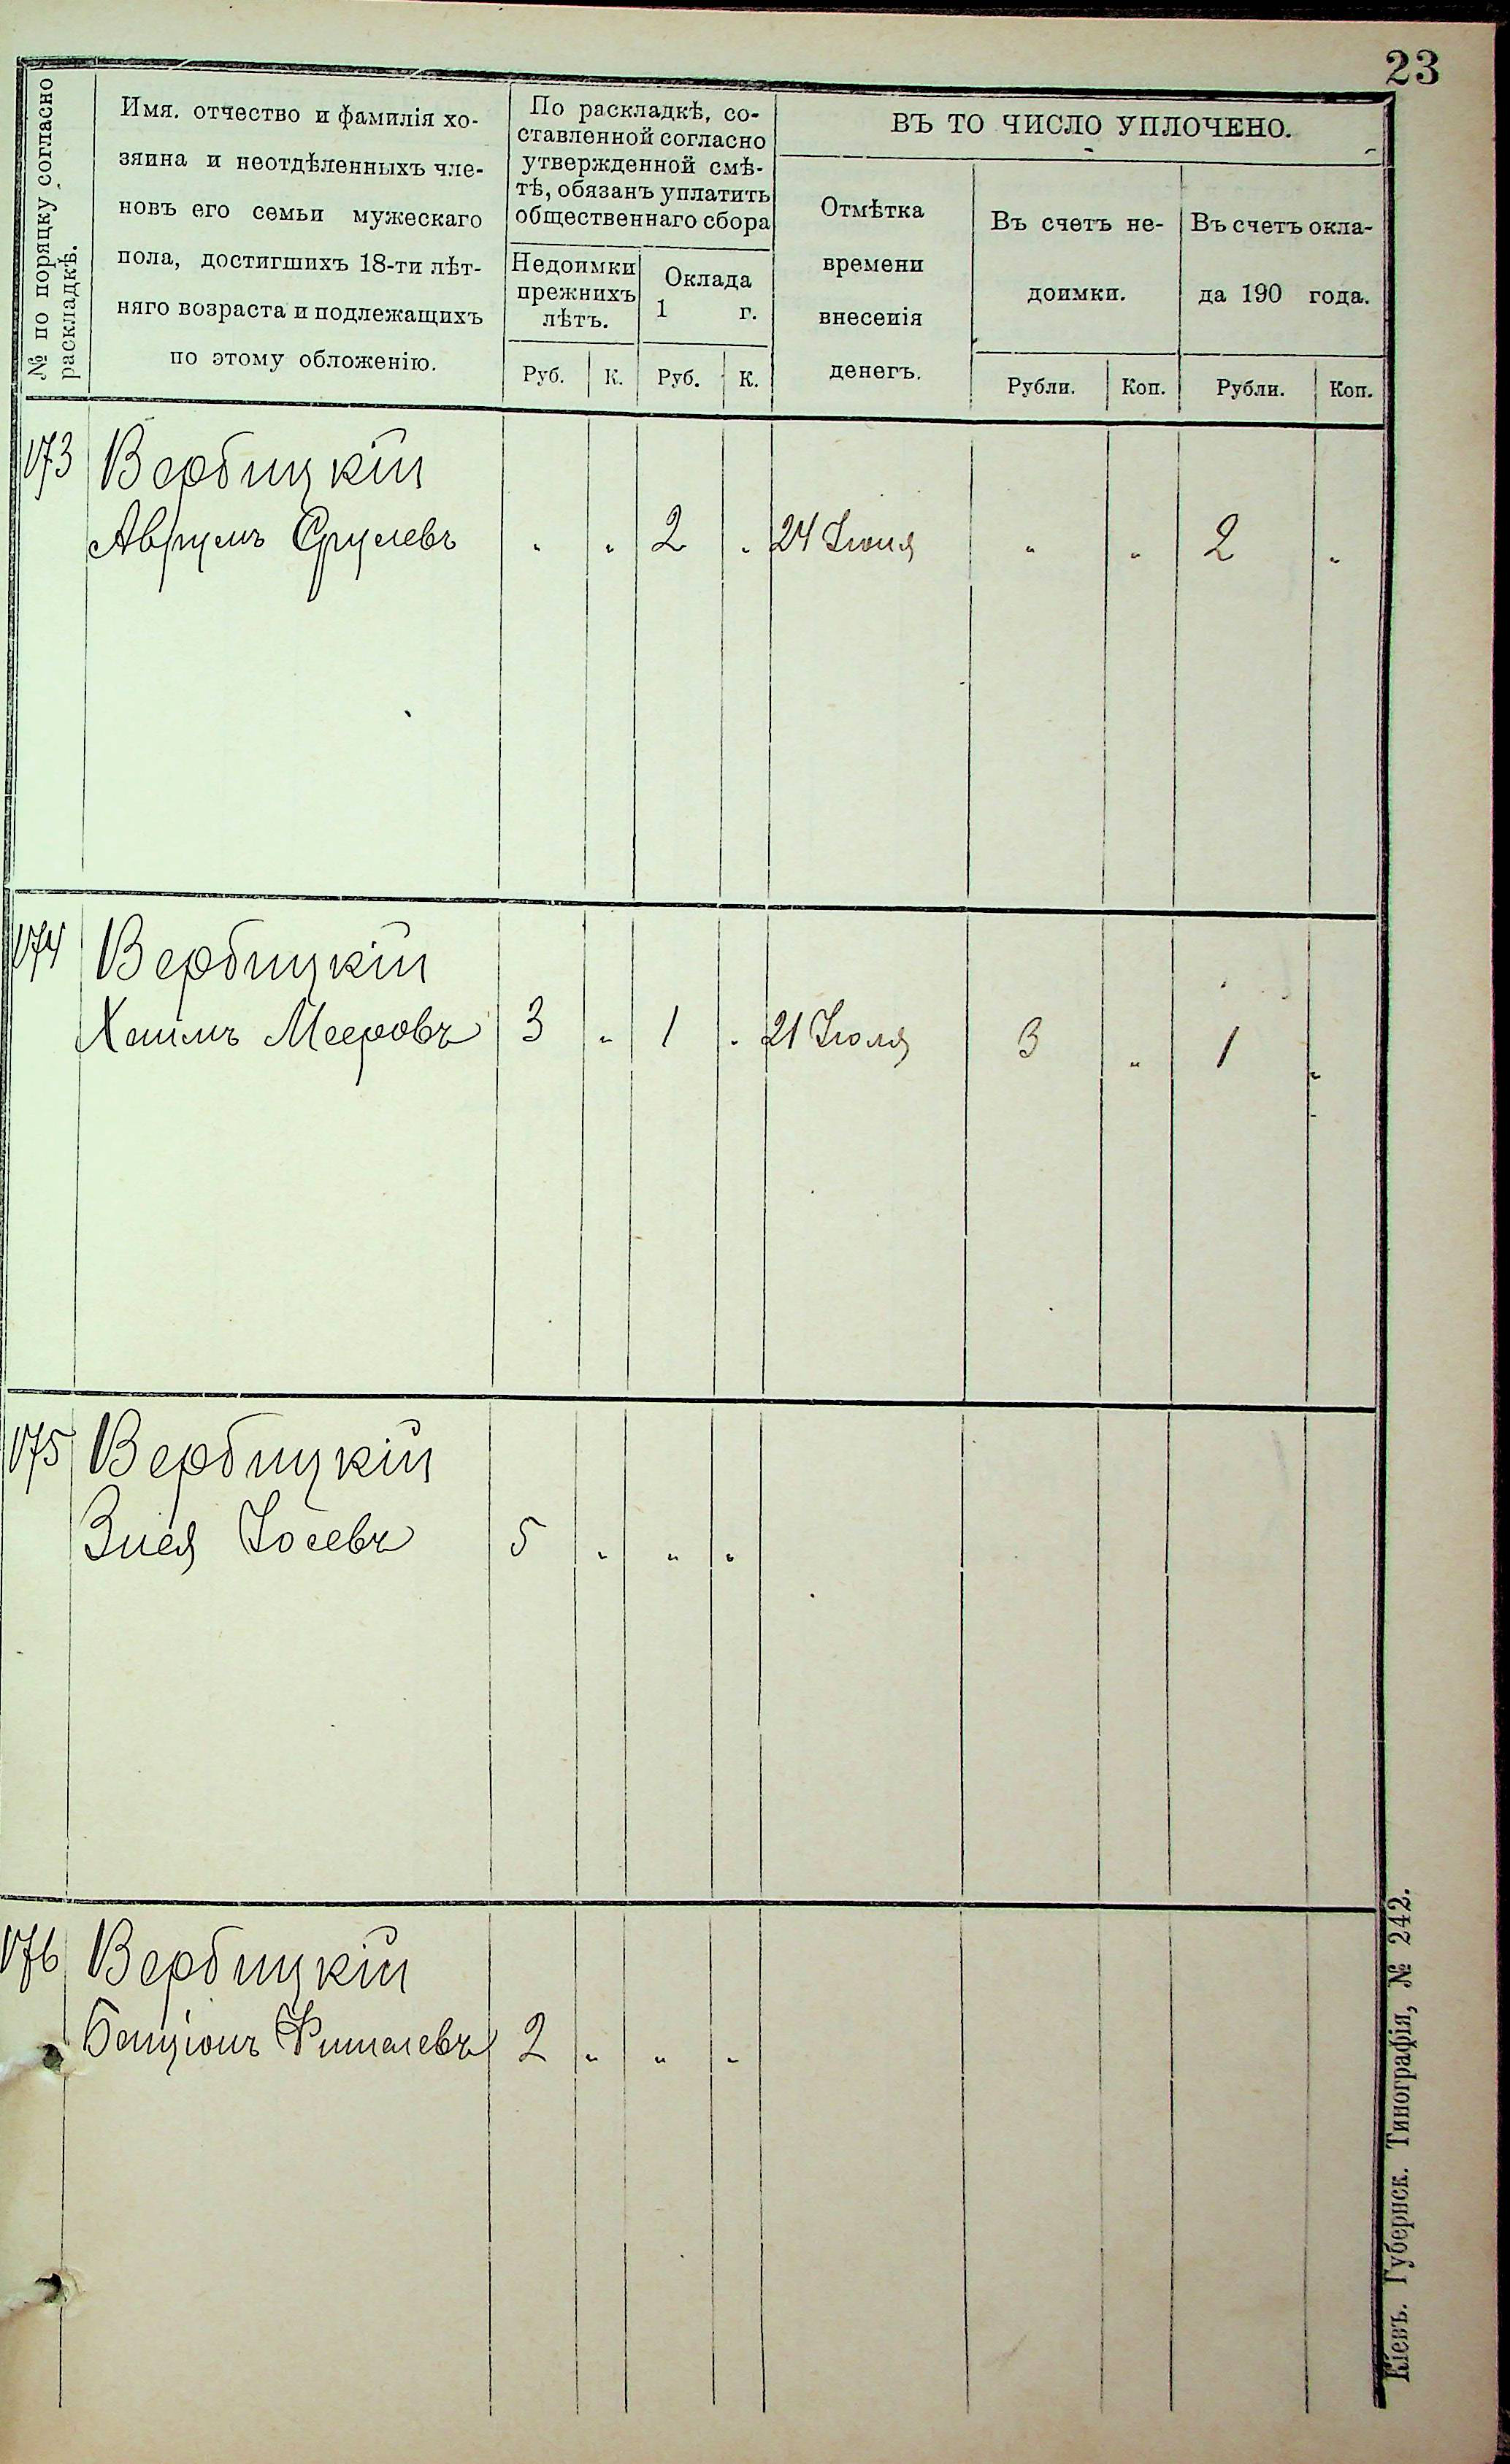 23
№ по порядку согласно
раскладкѣ.
Имя, отчество и фамилія хо-
зяина и неотдѣленныхъ чле-
новъ его семьи мужескаго
пола, достигшихъ 18-ти лѣт-
няго возраста и подлежащихъ
по этому обложенію.
По раскладкѣ, со-
ставленной согласно
утвержденной смѣ-
тѣ, обязанъ уплатить
общественнаго сбора
Недоимки
прежнихъ
лѣтъ.
Оклада
1 г.
Руб. К. Руб. К.
ВЪ ТО ЧИСЛО УПЛОЧЕНО.
Отмѣтка
времени
внесенія
денегъ.
Въ счетъ не-
доимки.
Въ счетъ окла-
да 190 года.
Рубли. Коп. Рубли. Коп.
173 Вербицкій
Аврумъ Срулевъ " " 2 " 24 Іюня " " 2 "
174 Вербицкій
Хаимъ Мееровъ 3 " 1 " 21 Іюля 3 " 1 "
175 Вербицкій
Зися Іосевъ 5 " " "
176 Вербицкій
Бенціонъ Фишелевъ 2 " " "
Кіевъ. Губернск. Типографія, № 242.